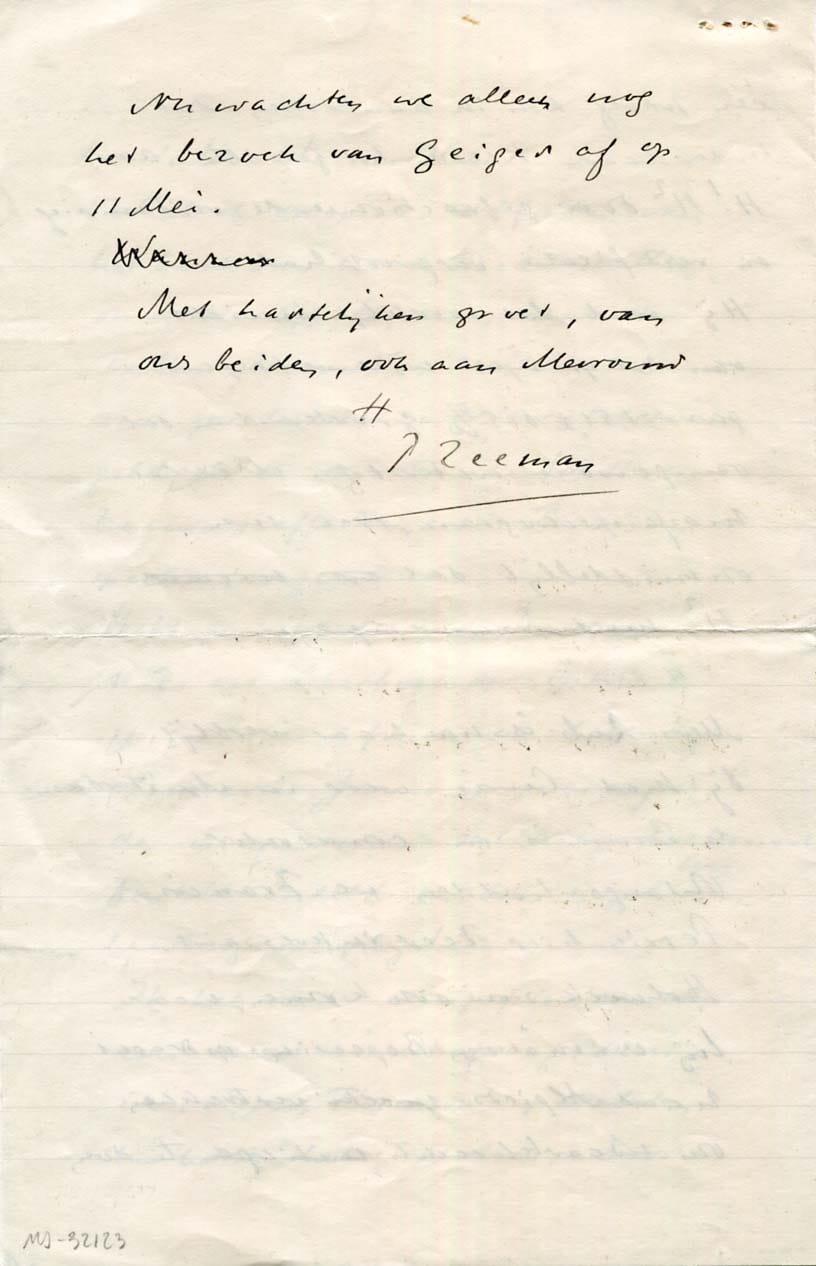 Nu wachten we alleen nog
het bezoek van Geiger af op
11 Mei.
Met hartelijken groet, van
ons beiden, ook aan Mevrouw
H
P Zeeman
MS-32123